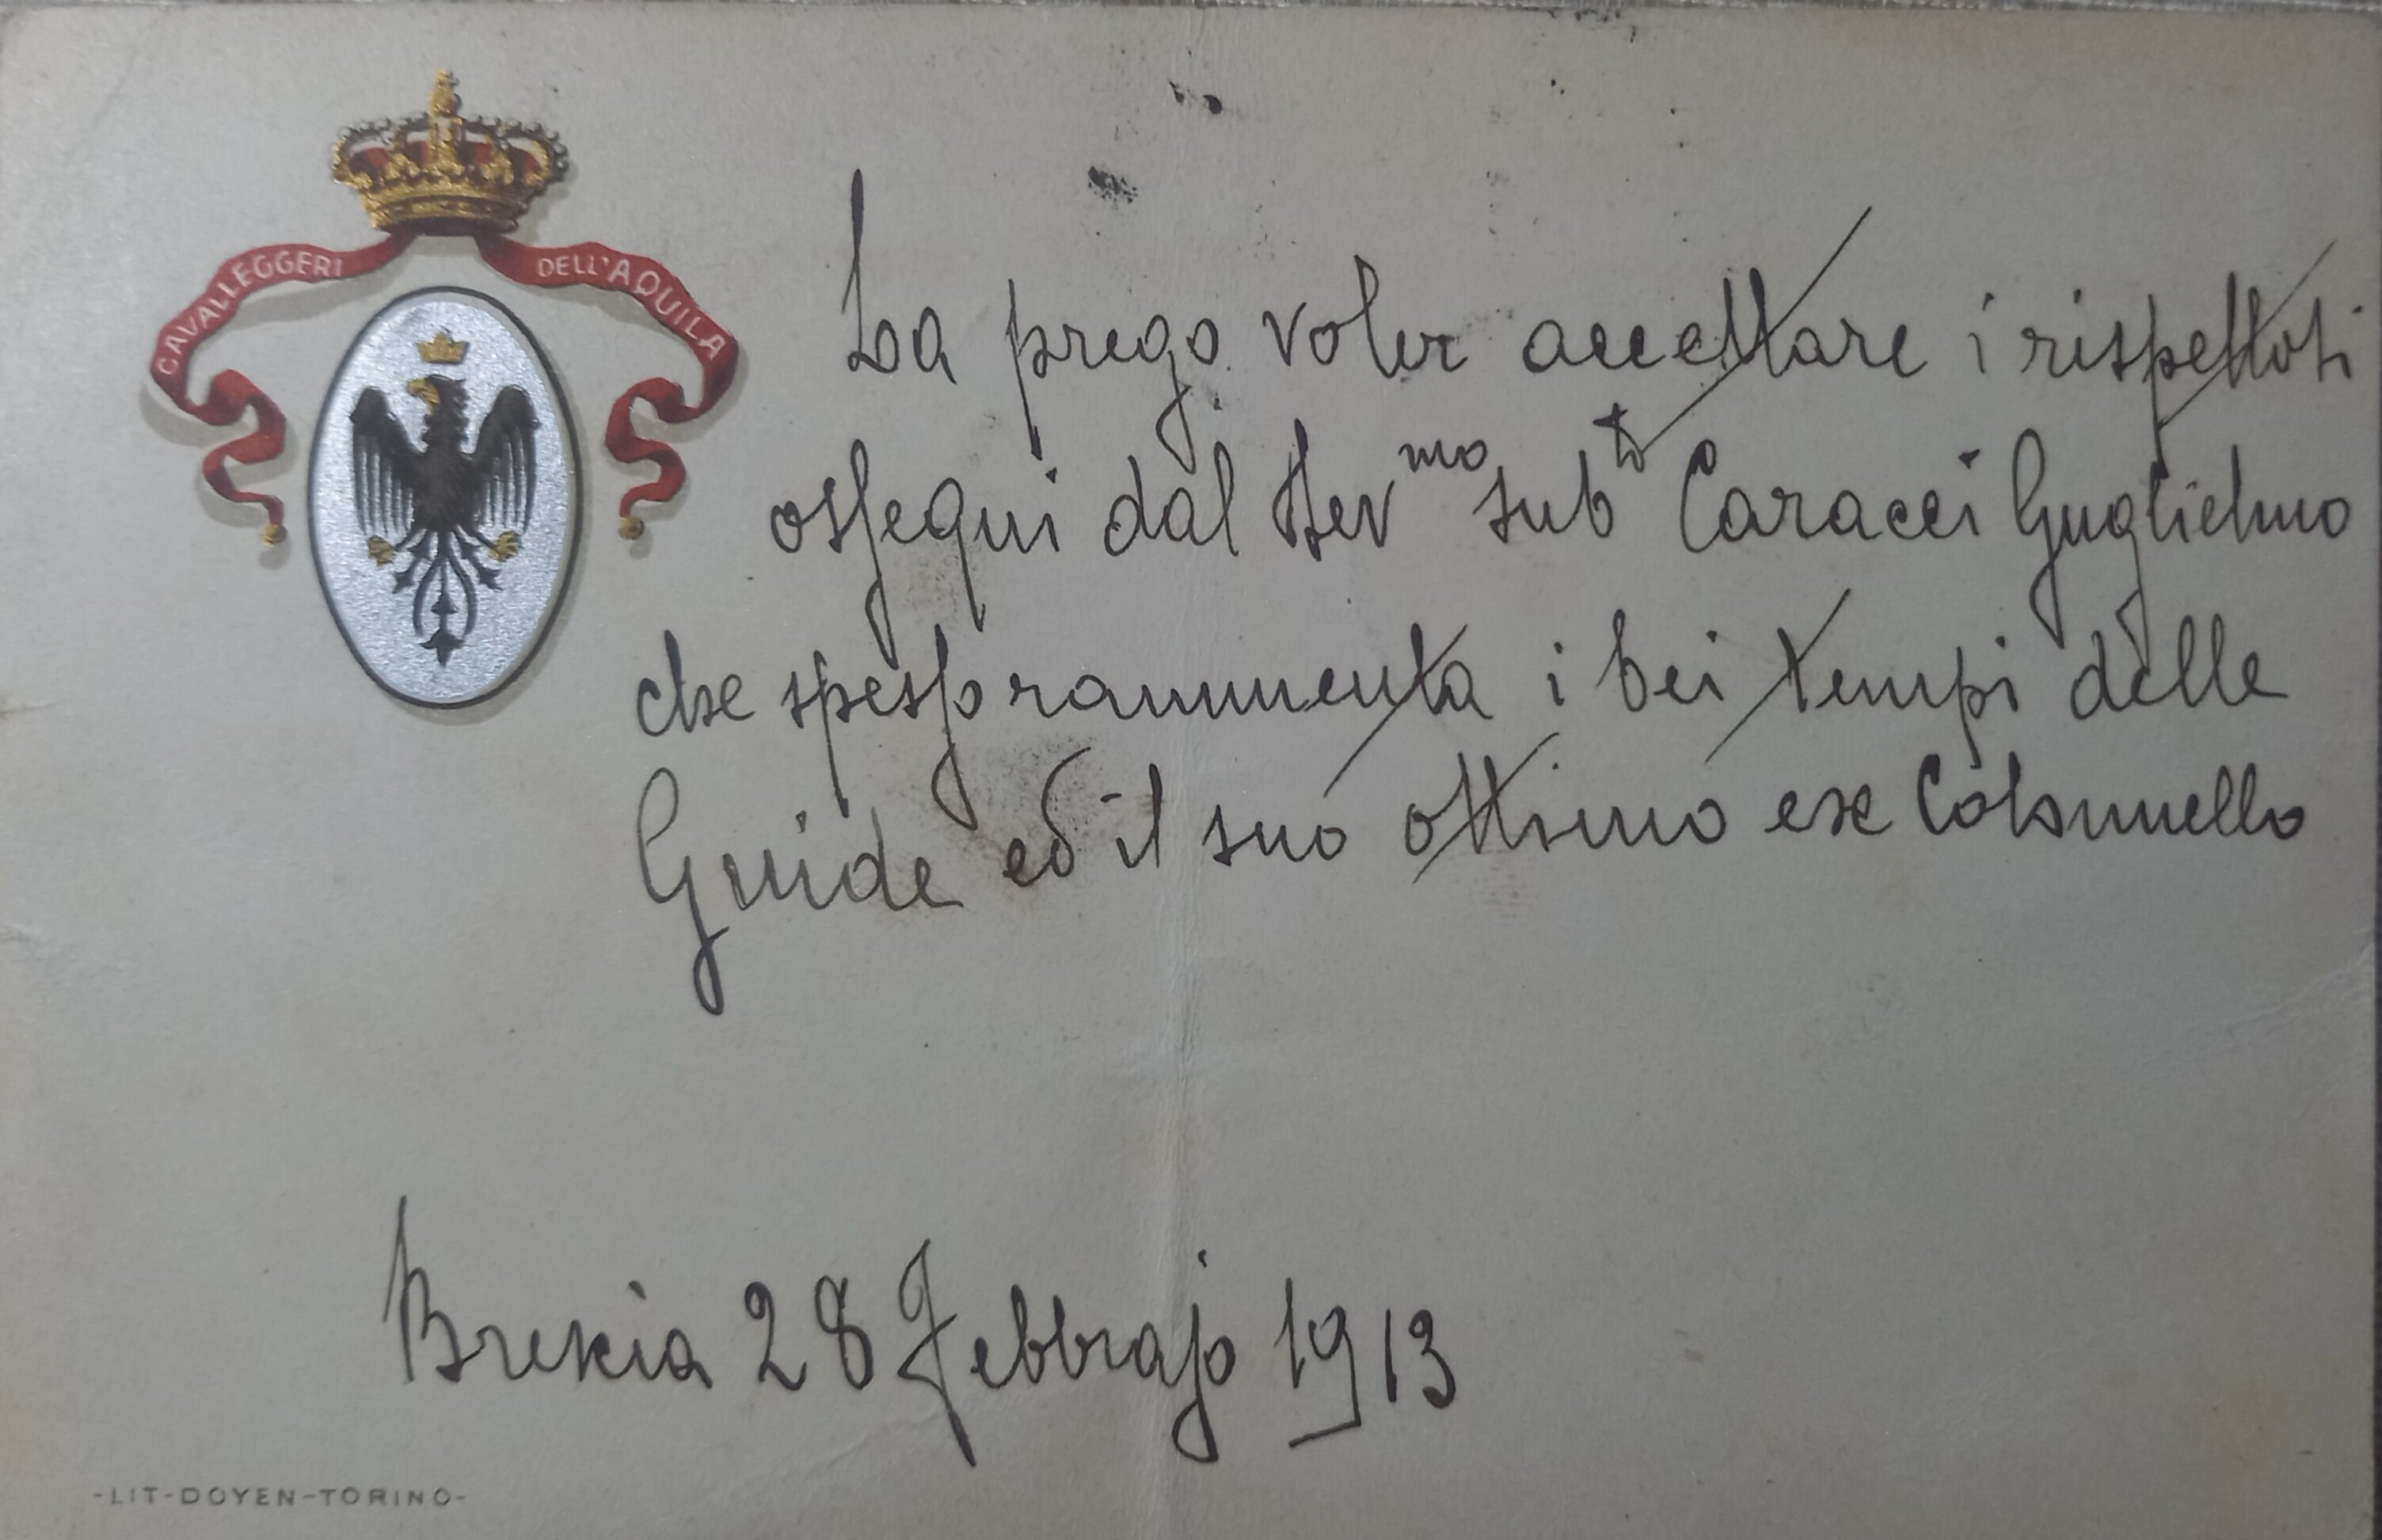 CAVALLEGGERI DELL'AQUILA
La prego voler accettare i rispettosi
ossequi dal Devmo subto Caracci Guglielmo
che spesso rammenta i bei tempi delle
Guide ed il suo ottimo ex Colonnello
Brescia 28 Febbrajo 1913
-LIT-DOYEN-TORINO-